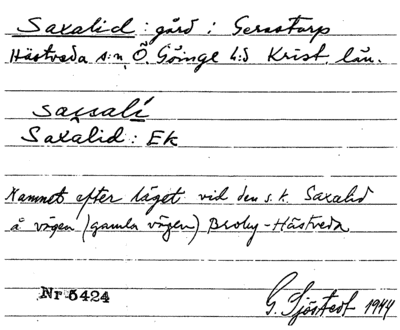 Saxalid: gård i Gerastorp
Hästveda s:n, Ö. Göinge h:d Krist. län.
saksalí
Saxalid: Ek
Namnet efter läget vid den s.k. Saxalid
å vägen (gamla vägen) Broby-Hästveda
Nr 5424
G. Sjöstedt 1944